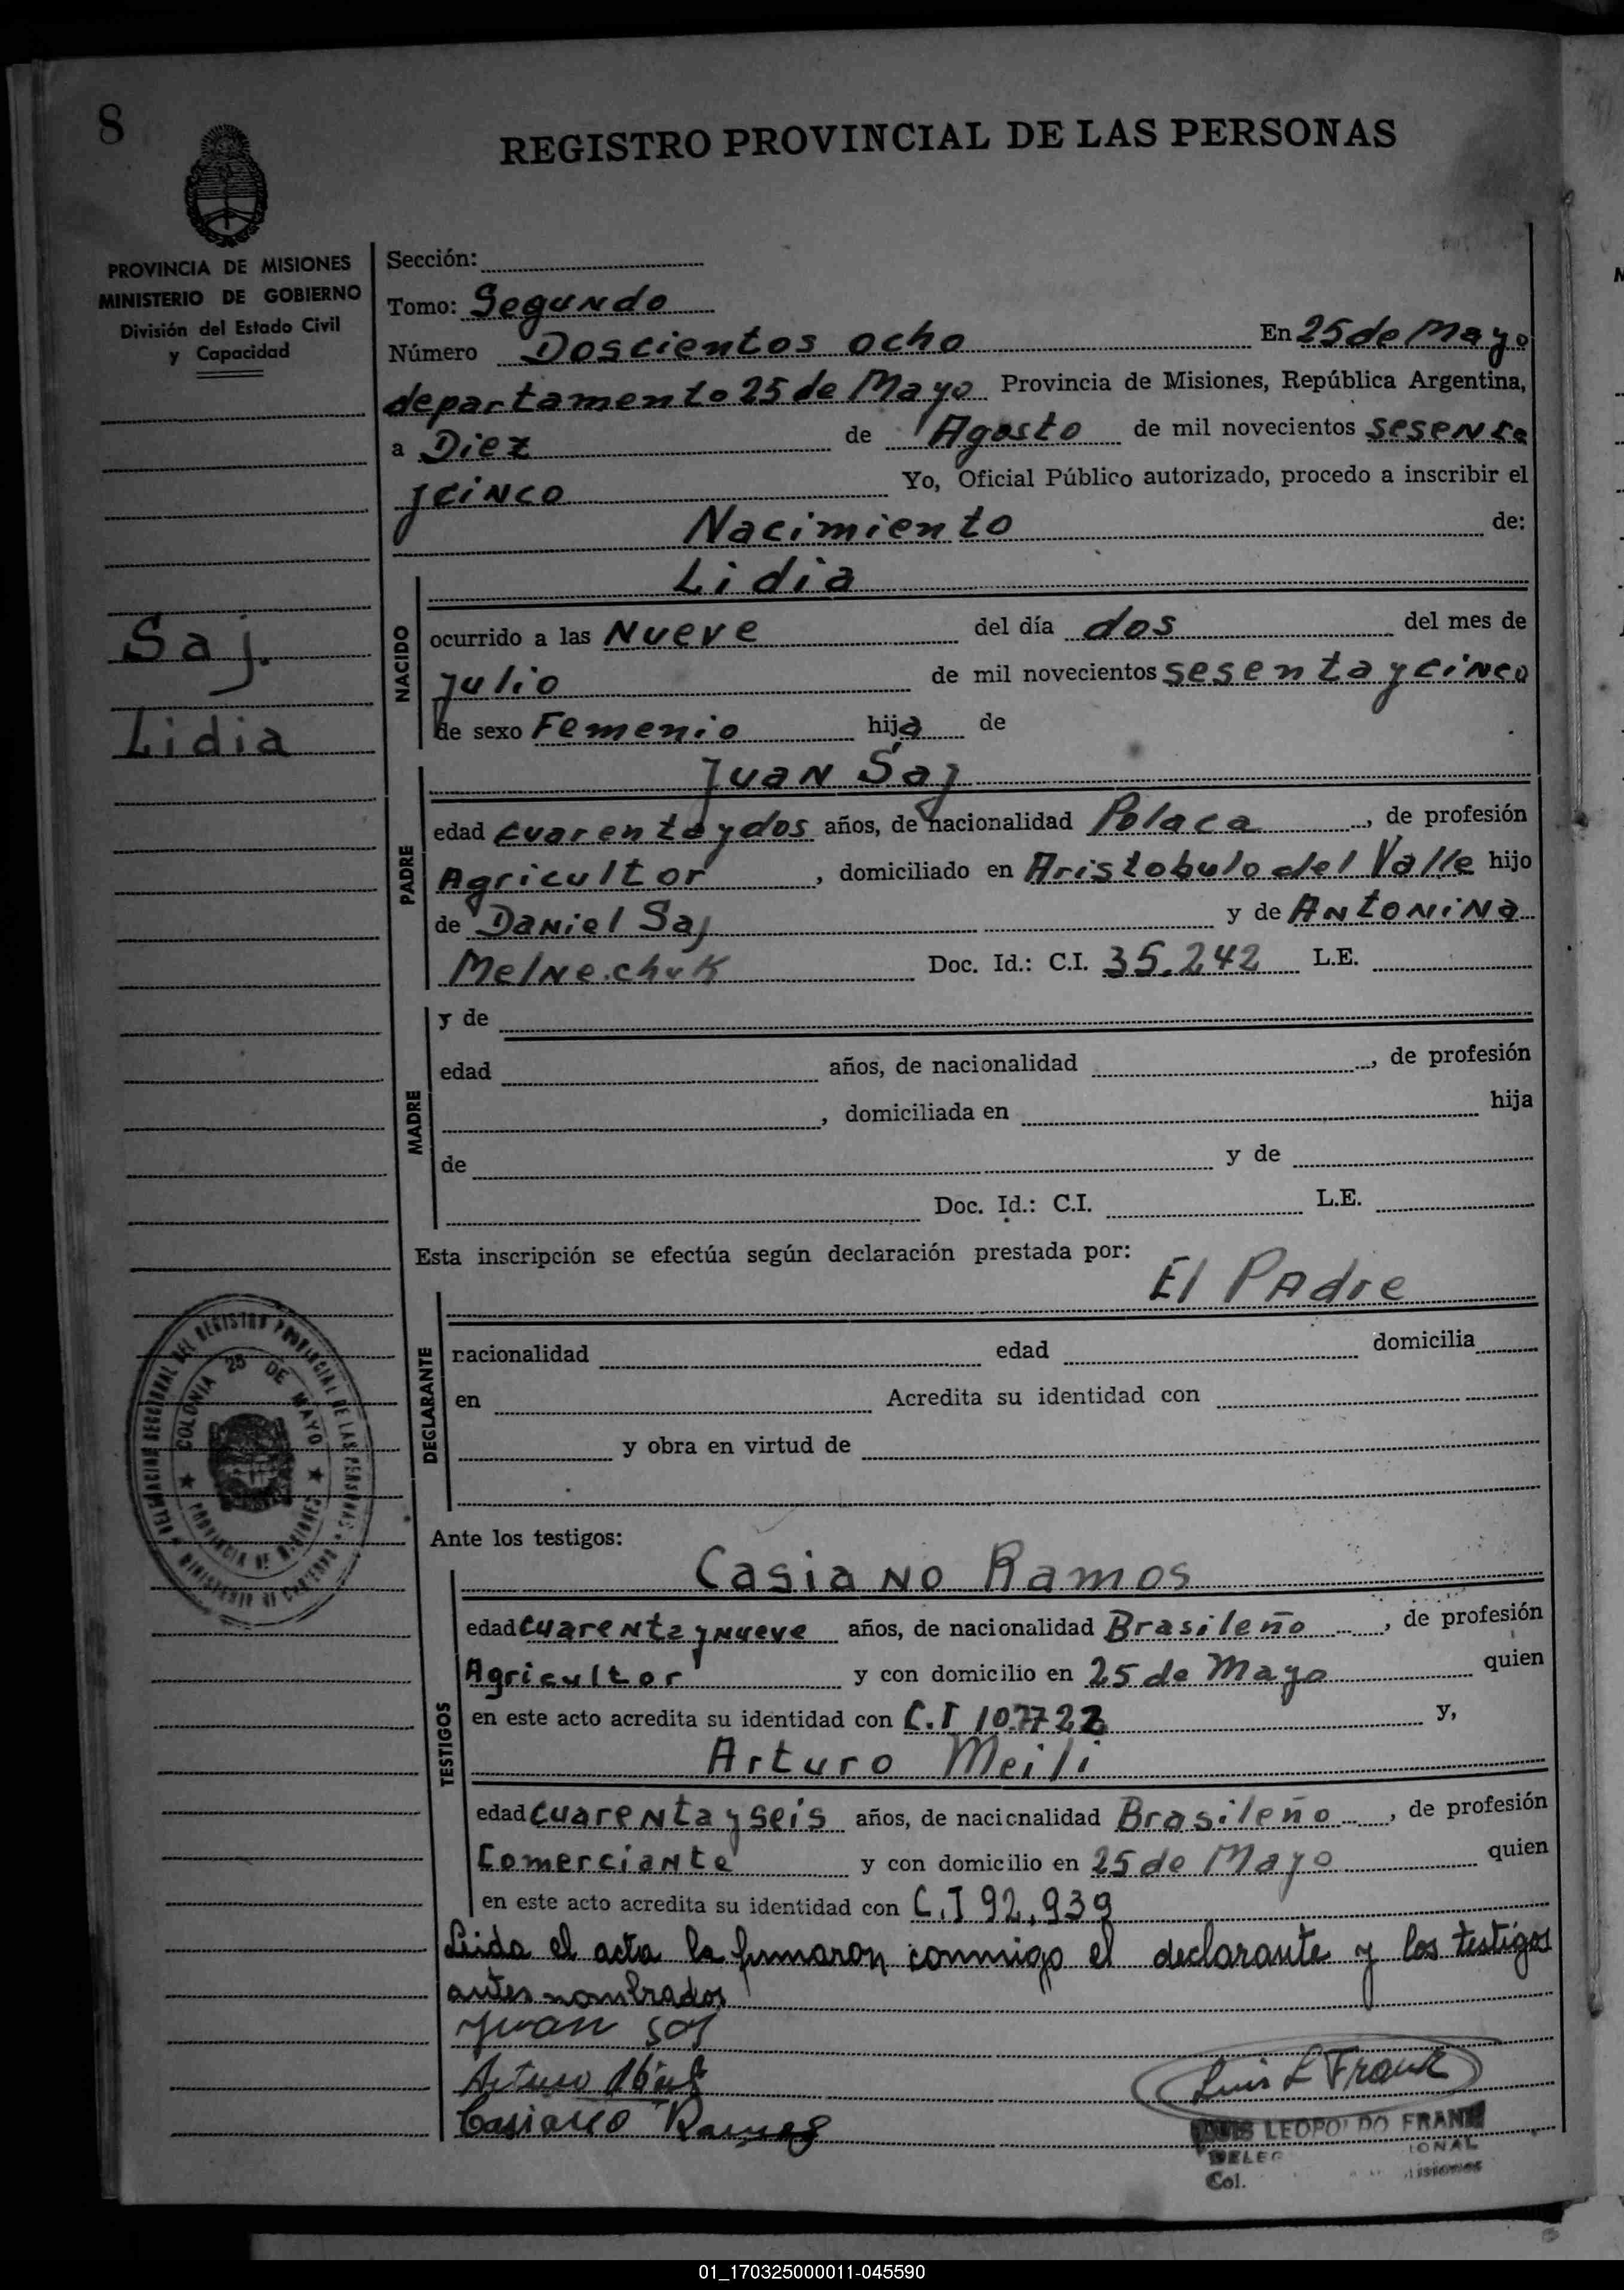 8
REGISTRO PROVINCIAL DE LAS PERSONAS
PROVINCIA DE MISIONES
MINISTERIO DE GOBIERNO
División del Estado Civil
y Capacidad
Saj.
Lidia
Sección:
Tomo: Segundo
Número Doscientos ocho En 25 de Mayo
departamento 25 de Mayo Provincia de Misiones, República Argentina,
a Diez de Agosto de mil novecientos sesenta
y cinco Yo, Oficial Público autorizado, procedo a inscribir el
Nacimiento de:
NACIDO
Lidia
ocurrido a las Nueve del día dos del mes de
Julio de mil novecientos sesenta y cinco
de sexo Femenio hija de
PADRE
Juan Saj
edad cuarenta y dos años, de nacionalidad Polaca, de profesión
Agricultor, domiciliado en Aristobulo del Valle hijo
de Daniel Saj y de Antonina
Melnechuk Doc. Id.: C.I. 35.242 L.E.
MADRE
y de
edad años, de nacionalidad , de profesión
, domiciliada en hija
de y de
Doc. Id.: C.I. L.E.
Esta inscripción se efectúa según declaración prestada por:
El Padre
DECLARANTE
nacionalidad edad domicilia
en Acredita su identidad con
y obra en virtud de
DELEGACION SECCIONAL DEL REGISTRO PROVINCIAL DE LAS PERSONAS
MINISTERIO DE GOBIERNO
COLONIA 25 DE MAYO
PROVINCIA DE MISIONES
Ante los testigos:
TESTIGOS
Casiano Ramos
edad cuarenta y nueve años, de nacionalidad Brasileño, de profesión
Agricultor y con domicilio en 25 de Mayo quien
en este acto acredita su identidad con C.I y,
Arturo Meili
edad cuarenta y seis años, de nacionalidad Brasileño, de profesión
Comerciante y con domicilio en 25 de Mayo quien
en este acto acredita su identidad con C.I 92.939
Leida el acta la firmaron conmigo el declarante y los testigos
antes nombrados
Juan Saj
Arturo
Casiano Ramos
Luis L Frank
LUIS LEOPOLDO FRANK
Col.
01_170325000011-045590